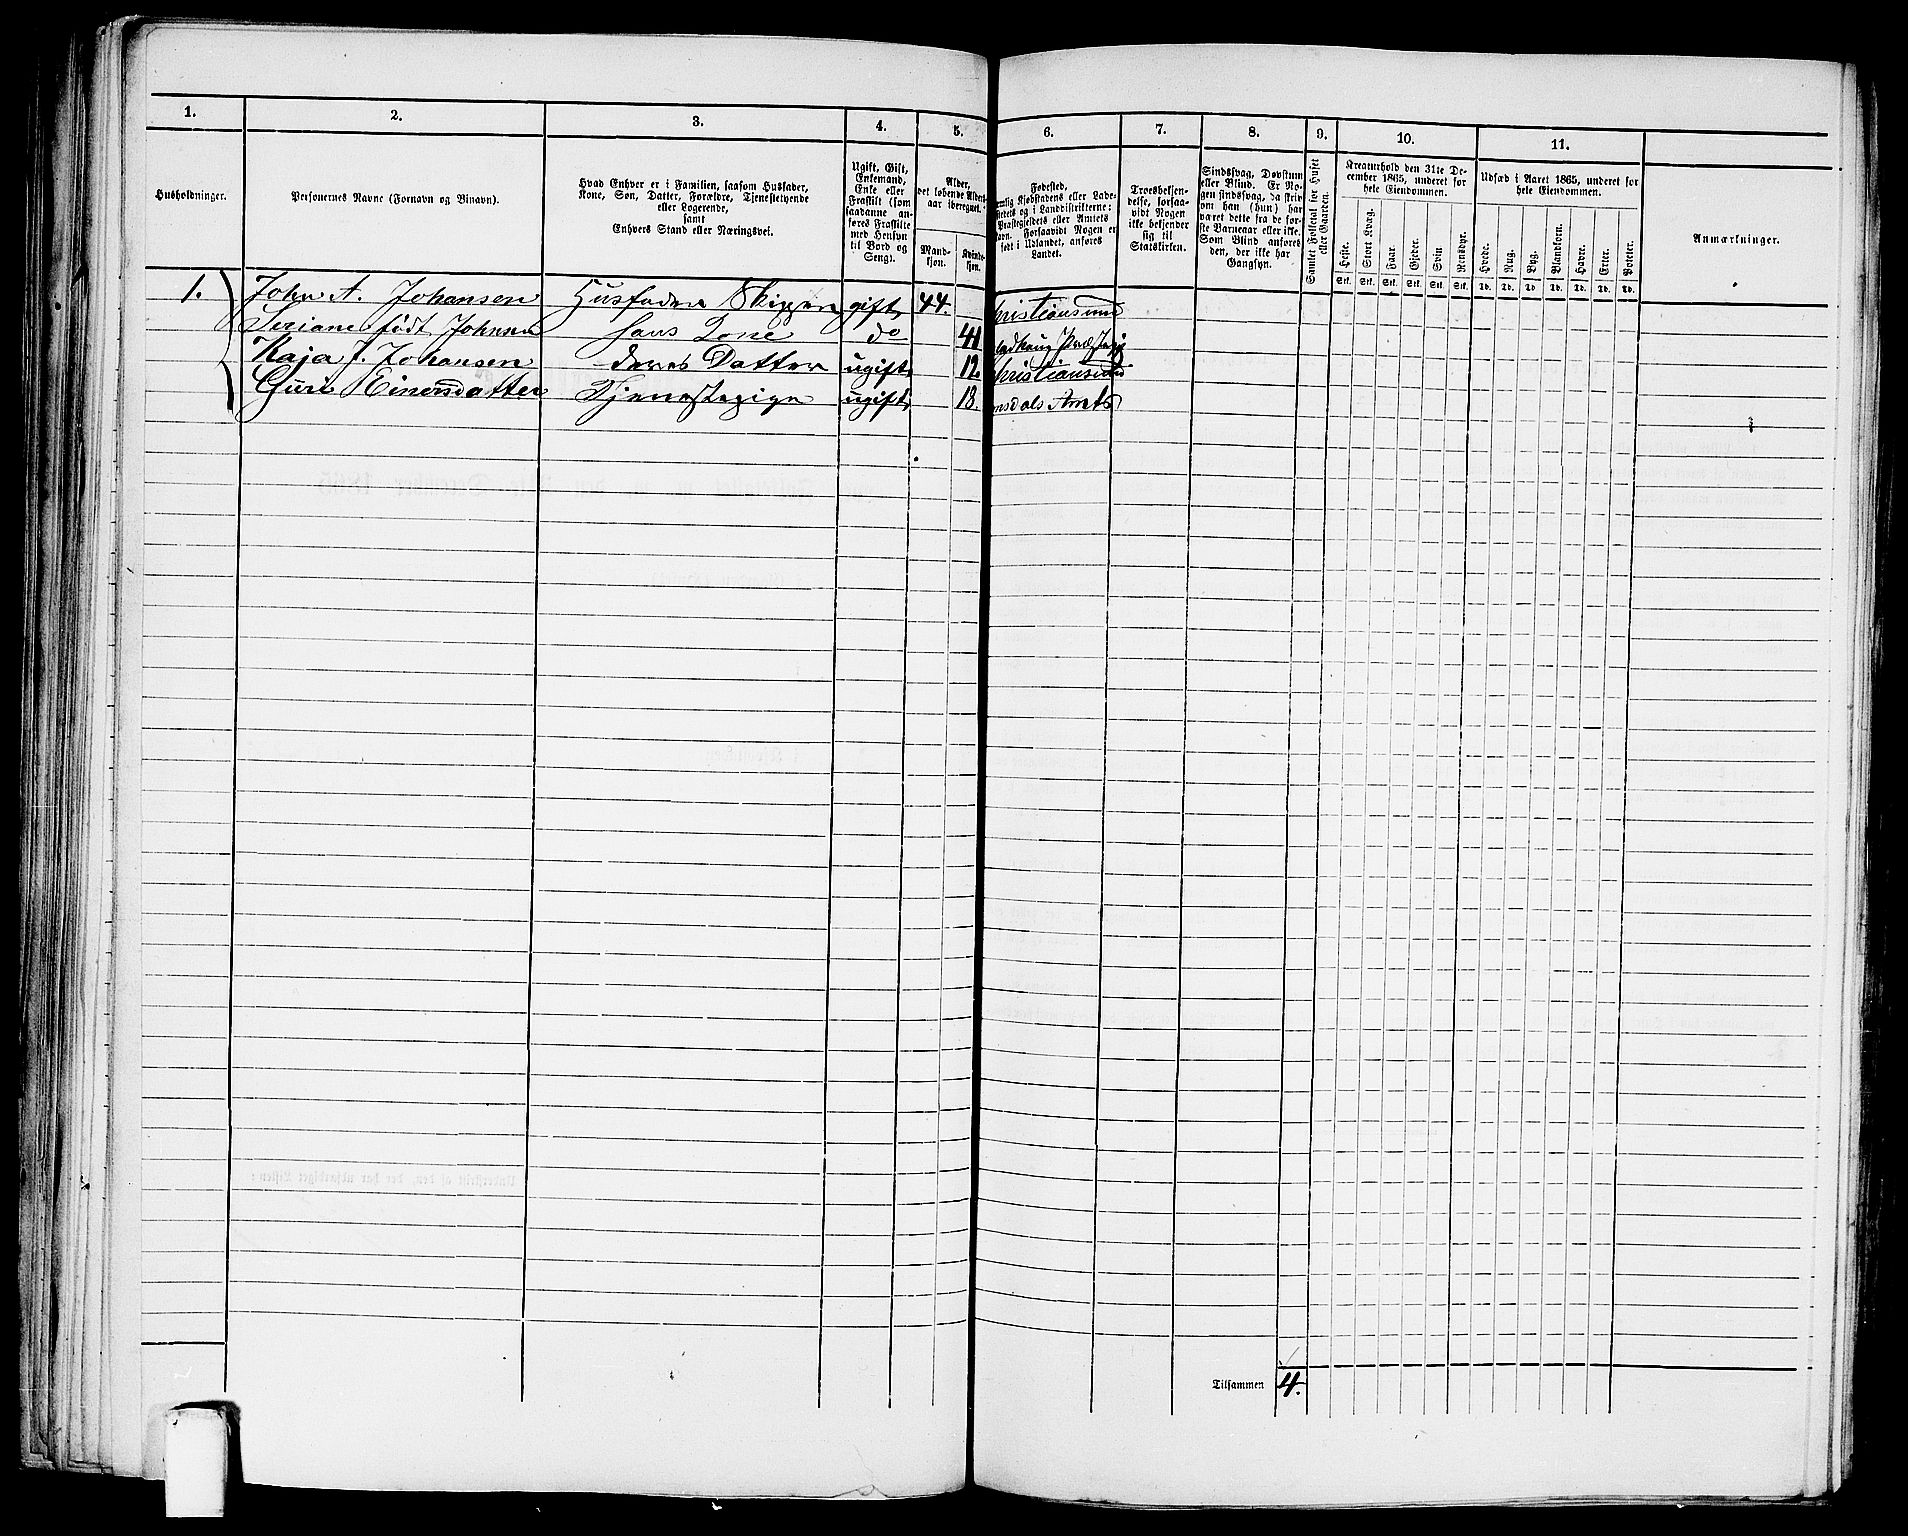 1. 2. 3. 4. 5. 6. 7. 8. 9. 10. 11.
Husholdninger.
Personernes Navne (Fornavn og Binavn).
Hvad Enhver er i Familien, saasom Husfader,
Kone, Søn, Datter, Forældre, Tjenestetyende
eller Logerende,
samt
Enhvers Stand eller Næringsvei.
Ugift, Gift,
Enkemand,
Enke eller
Fraskilt (som
saadanne an-
føres Fraskilte
med Hensyn
til Bord og
Seng).
Alder,
det løbende Alders-
aar iberegnet.
Mand-
kjøn.
Kvinde-
kjøn.
Fødested,
Kjøbstadens eller Lade-
stedets og i Landdistrikterne:
Præstegjeldets eller Amtets
Navn. Forsaavidt Nogen er
født i Udlandet, anføres
Landet.
Troesbekjen-
delse, forsaa-
vidt Nogen
ikke bekjender
sig til
Statskirken.
Sindssvag, Døvstum
eller Blind. Er No-
gen sindssvag, da skriv
om han (hun) har
været dette fra de før-
ste Barneaar eller ikke.
Som Blind anføres
den, der ikke har
Gangsyn.
Samlet Folketal for Huset
eller Gaarden.
Kreaturhold den 31te De-
cember 1865, underet for
hele Eiendommen.
Heste. Stort Kvæg. Faar. Gjeder. Svin. Rensdyr.
Stk. Stk. Stk. Stk. Stk. Stk.
Udsæd i Aaret 1865, underet for
hele Eiendommen.
Hvede. Rug. Byg. Blandkorn. Havre. Erter. Poteter.
Td. Td. Td. Td. Td. Td. Td.
Anmærkninger.
1. John A. Johansen Husfader Skipper gift 44. hristiansund
Seriane født Johnsen hans Kone do 41
Kaja J. Johansen deres Datter ugift 12. hristiansund
Guri Einersdatter Tjenestepige ugift 18. msdals Amt
Tilsammen 4.